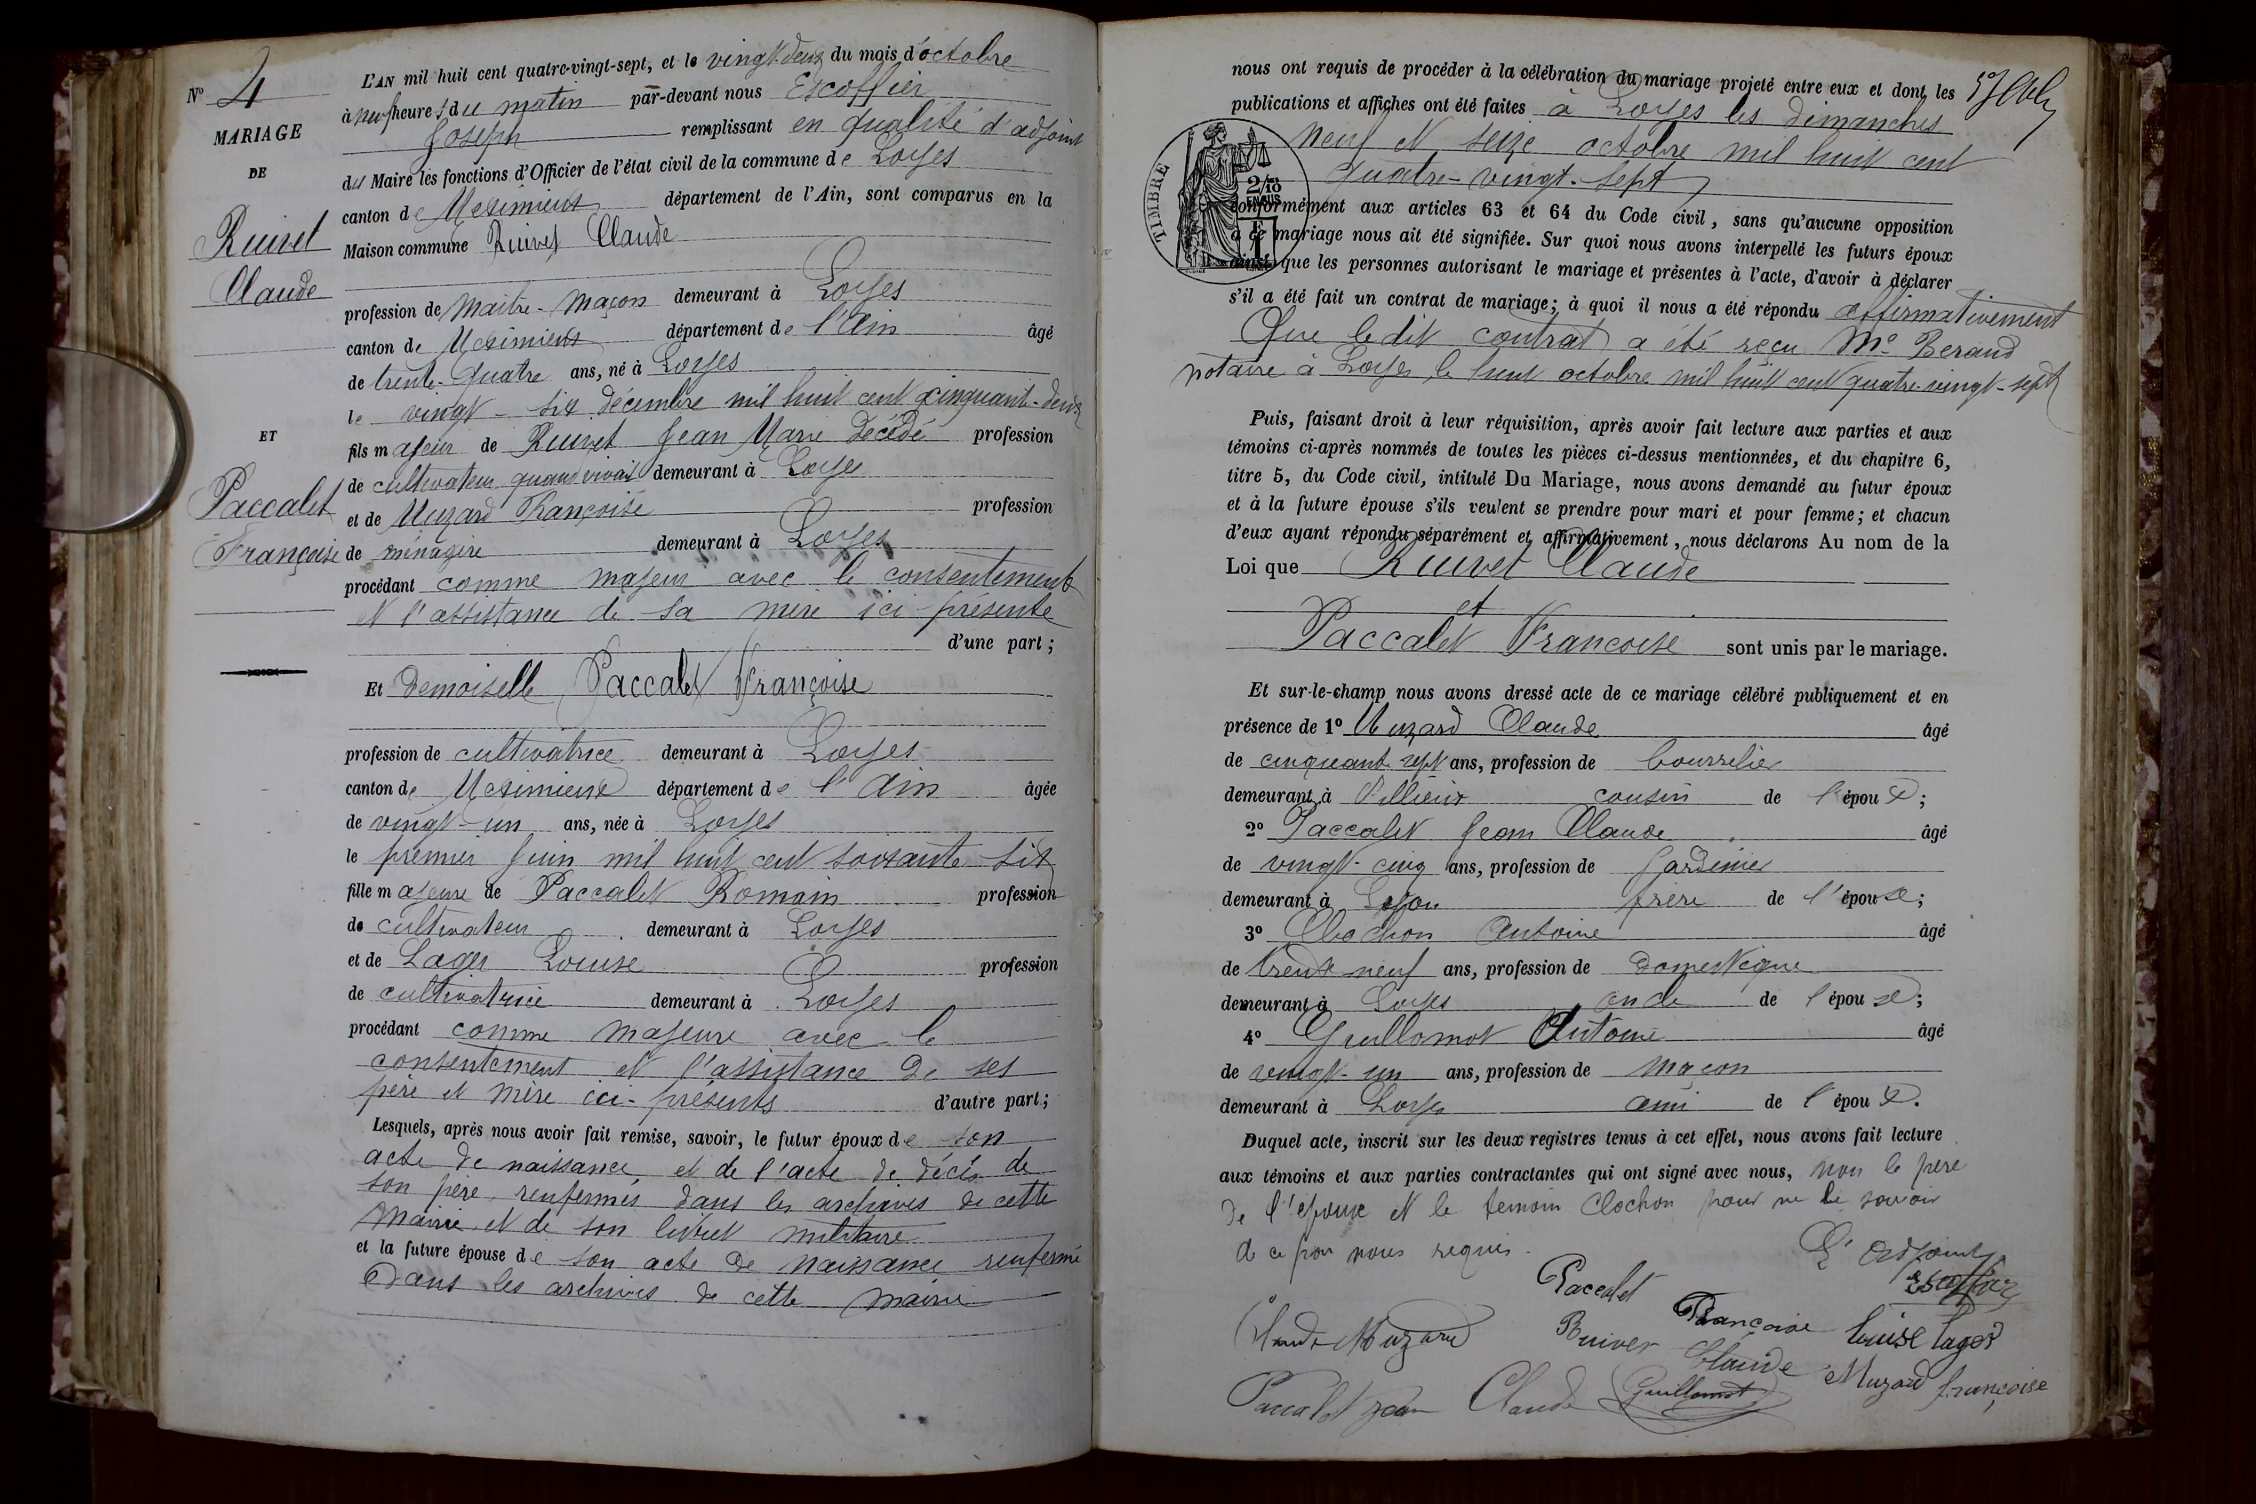 N° 4
MARIAGE
DE
Ruivet
Claude
ET
Paccalet
Françoise
L'AN mil huit cent quatre-vingt-sept, et le vingt-deux du mois d'octobre
à neuf heures du matin par-devant nous Escoffier
Joseph remplissant en qualité d'adjoint
du Maire les fonctions d'Officier de l'état civil de la commune de Loyes
canton de Meximieux département de l'Ain, sont comparus en la
Maison commune Ruivet Claude
profession de Maître-Maçon demeurant à Loyes
canton de Meximieux département de l'Ain âgé
de trente-quatre ans, né à Loyes
le vingt-six décembre mil huit cent cinquante-deux
fils majeur de Ruivet Jean Marie décédé profession
de cultivateur quand vivait demeurant à Loyes
et de Muzard Françoise profession
de ménagère demeurant à Loyes
procédant comme majeur avec le consentement
et l'assistance de sa mère ici-présente
d'une part ;
Et Demoiselle Paccalet Françoise
profession de cultivatrice demeurant à Loyes
canton de Meximieux département de l'Ain âgée
de vingt-un ans, née à Loyes
le premier Juin mil huit cent soixante-six
fille majeure de Paccalet Romain profession
de cultivateur demeurant à Loyes
et de Lager Louise profession
de cultivatrice demeurant à Loyes
procédant comme majeure avec le
consentement et l'assistance de ses
père et mère ici-présents d'autre part ;
Lesquels, après nous avoir fait remise, savoir, le futur époux de son
acte de naissance et de l'acte de décès de
son père, renfermés dans les archives de cette
Mairie et de son livret militaire
et la future épouse de son acte de naissance renfermé
dans les archives de cette mairie
nous ont requis de procéder à la célébration du mariage projeté entre eux et dont les
publications et affiches ont été faites à Loyes les dimanches
neuf et seize octobre mil huit cent
quatre-vingt-sept
TIMBRE
2/10
EN SUS
conformément aux articles 63 et 64 du Code civil, sans qu'aucune opposition
à ce mariage nous ait été signifiée. Sur quoi nous avons interpellé les futurs époux
ainsi que les personnes autorisant le mariage et présentes à l'acte, d'avoir à déclarer
s'il a été fait un contrat de mariage ; à quoi il nous a été répondu affirmativement
Que le dit contrat a été reçu Me Beraud
notaire à Loyes le huit octobre mil huit cent quatre-vingt-sept
Puis, faisant droit à leur réquisition, après avoir fait lecture aux parties et aux
témoins ci-après nommés de toutes les pièces ci-dessus mentionnées, et du chapitre 6,
titre 5, du Code civil, intitulé Du Mariage, nous avons demandé au futur époux
et à la future épouse s'ils veulent se prendre pour mari et pour femme ; et chacun
d'eux ayant répondu séparément et affirmativement, nous déclarons Au nom de la
Loi que Ruivet Claude
et
Paccalet Françoise sont unis par le mariage.
Et sur-le-champ nous avons dressé acte de ce mariage célébré publiquement et en
présence de 1° Muzard Claude âgé
de cinquante sept ans, profession de bourrelier
demeurant à Villieux cousin de l'époux ;
2° Paccalet Jean Claude âgé
de vingt-cinq ans, profession de Jardinier
demeurant à Lyon frère de l'épouse ;
3° Clochon Antoine âgé
de trente neuf ans, profession de domestique
demeurant à Loyes oncle de l'épouse ;
4° Guillomot Antoine âgé
de vingt-un ans, profession de maçon
demeurant à Loyes ami de l'époux.
Duquel acte, inscrit sur les deux registres tenus à cet effet, nous avons fait lecture
aux témoins et aux parties contractantes qui ont signé avec nous, non le père
de l'épouse et le temoin Clochon pour ne le savoir
de ce par nous requis.
L'adjoint
Escoffier
Paccalet Françoise
Claude Muzard
Ruivet Claude
Louise Lager
Paccalet Jean Claude
Guillomot
Muzard françoise